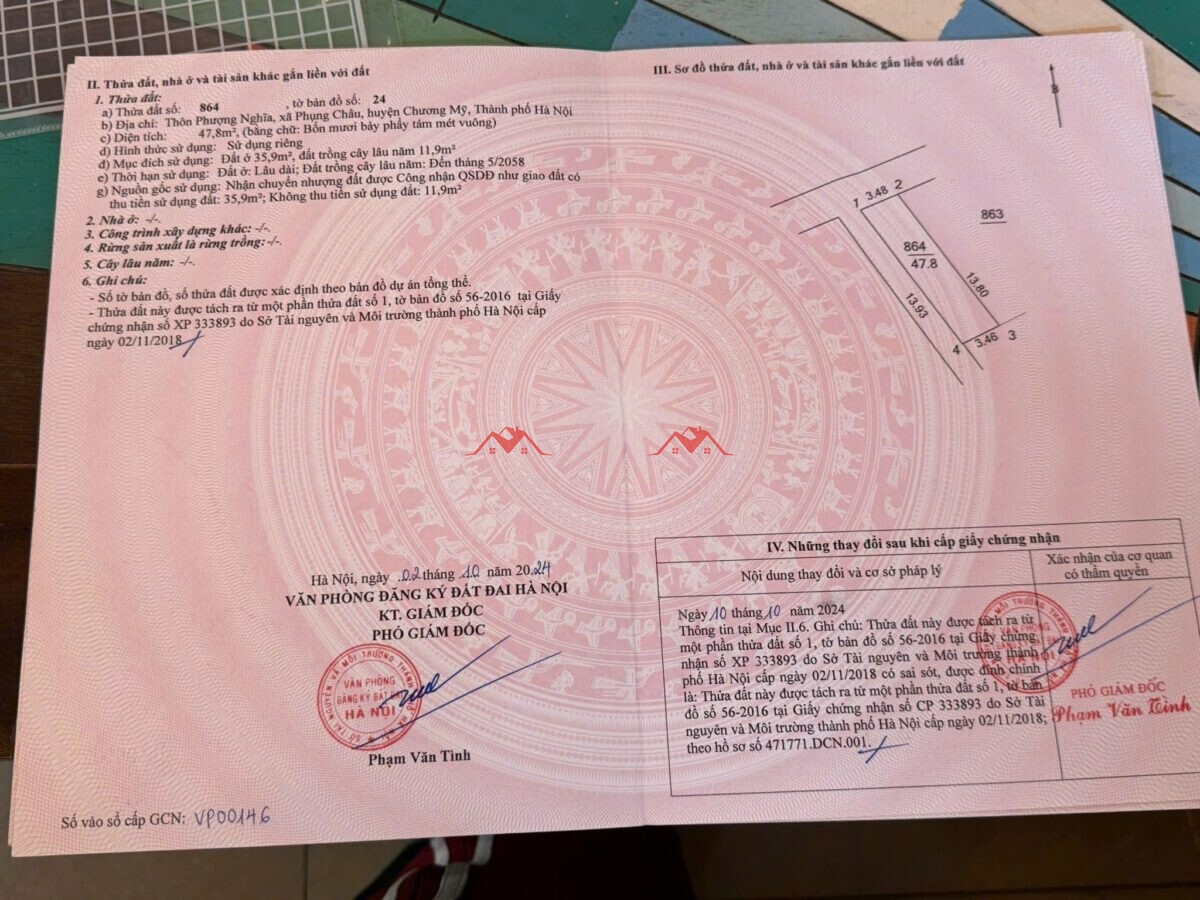 II. Thửa đất, nhà ở và tài sản khác gắn liền với đất
1. Thửa đất:
a) Thửa đất số: 864 , tờ bản đồ số: 24
b) Địa chỉ: Thôn Phượng Nghĩa, xã Phụng Châu, huyện Chương Mỹ, Thành phố Hà Nội
c) Diện tích: 47,8m², (bằng chữ: Bốn mươi bảy phẩy tám mét vuông)
d) Hình thức sử dụng: Sử dụng riêng
đ) Mục đích sử dụng: Đất ở 35,9m², đất trồng cây lâu năm 11,9m²
e) Thời hạn sử dụng: Đất ở: Lâu dài; Đất trồng cây lâu năm: Đến tháng 5/2058
g) Nguồn gốc sử dụng: Nhận chuyển nhượng đất được Công nhận QSDĐ như giao đất có
thu tiền sử dụng đất: 35,9m²; Không thu tiền sử dụng đất: 11,9m²
2. Nhà ở: -/-.
3. Công trình xây dựng khác: -/-.
4. Rừng sản xuất là rừng trồng:-/-.
5. Cây lâu năm: -/-.
6. Ghi chú:
- Số tờ bản đồ, số thửa đất được xác định theo bản đồ dự án tổng thể.
- Thửa đất này được tách ra từ một phần thửa đất số 1, tờ bản đồ số 56-2016 tại Giấy
chứng nhận số XP 333893 do Sở Tài nguyên và Môi trường thành phố Hà Nội cấp
ngày 02/11/2018
Hà Nội, ngày 02 tháng 10 năm 2024
VĂN PHÒNG ĐĂNG KÝ ĐẤT ĐAI HÀ NỘI
KT. GIÁM ĐỐC
PHÓ GIÁM ĐỐC
VĂN PHÒNG
ĐĂNG KÝ ĐẤT
HÀ NỘI
Phạm Văn Tình
Số vào sổ cấp GCN: VP00146
III. Sơ đồ thửa đất, nhà ở và tài sản khác gắn liền với đất
B
1 3.48 2
863
864
47.8
13.80
13.93
4 3.46 3
IV. Những thay đổi sau khi cấp giấy chứng nhận
Nội dung thay đổi và cơ sở pháp lý
Xác nhận của cơ quan
có thẩm quyền
Ngày 10 tháng 10 năm 2024
Thông tin tại Mục II.6. Ghi chú: Thửa đất này được tách ra từ
một phần thửa đất số 1, tờ bản đồ số 56-2016 tại Giấy chứng
nhận số XP 333893 do Sở Tài nguyên và Môi trường thành
phố Hà Nội cấp ngày 02/11/2018 có sai sót, được đính chính
là: Thửa đất này được tách ra từ một phần thửa đất số 1, tờ bản
đồ số 56-2016 tại Giấy chứng nhận số CP 333893 do Sở Tài
nguyên và Môi trường thành phố Hà Nội cấp ngày 02/11/2018;
theo hồ sơ số 471771.DCN.001.
PHÓ GIÁM ĐỐC
Phạm Văn Tình